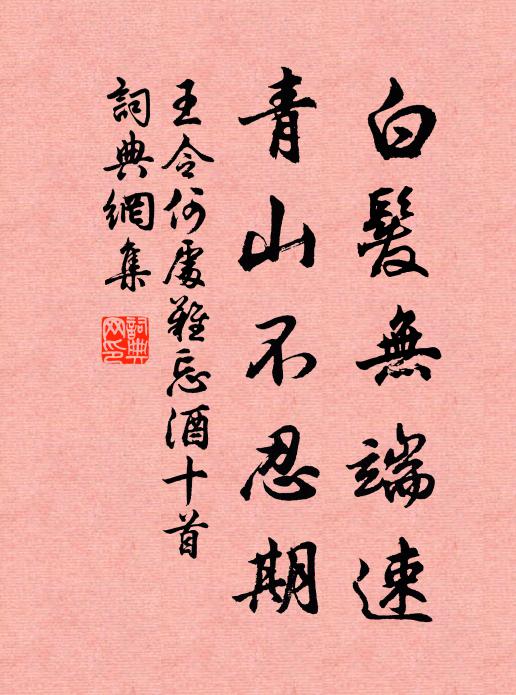 白髮無端速
青山不忍期
王令何處難忘酒十首
詞典網集
詞典網印